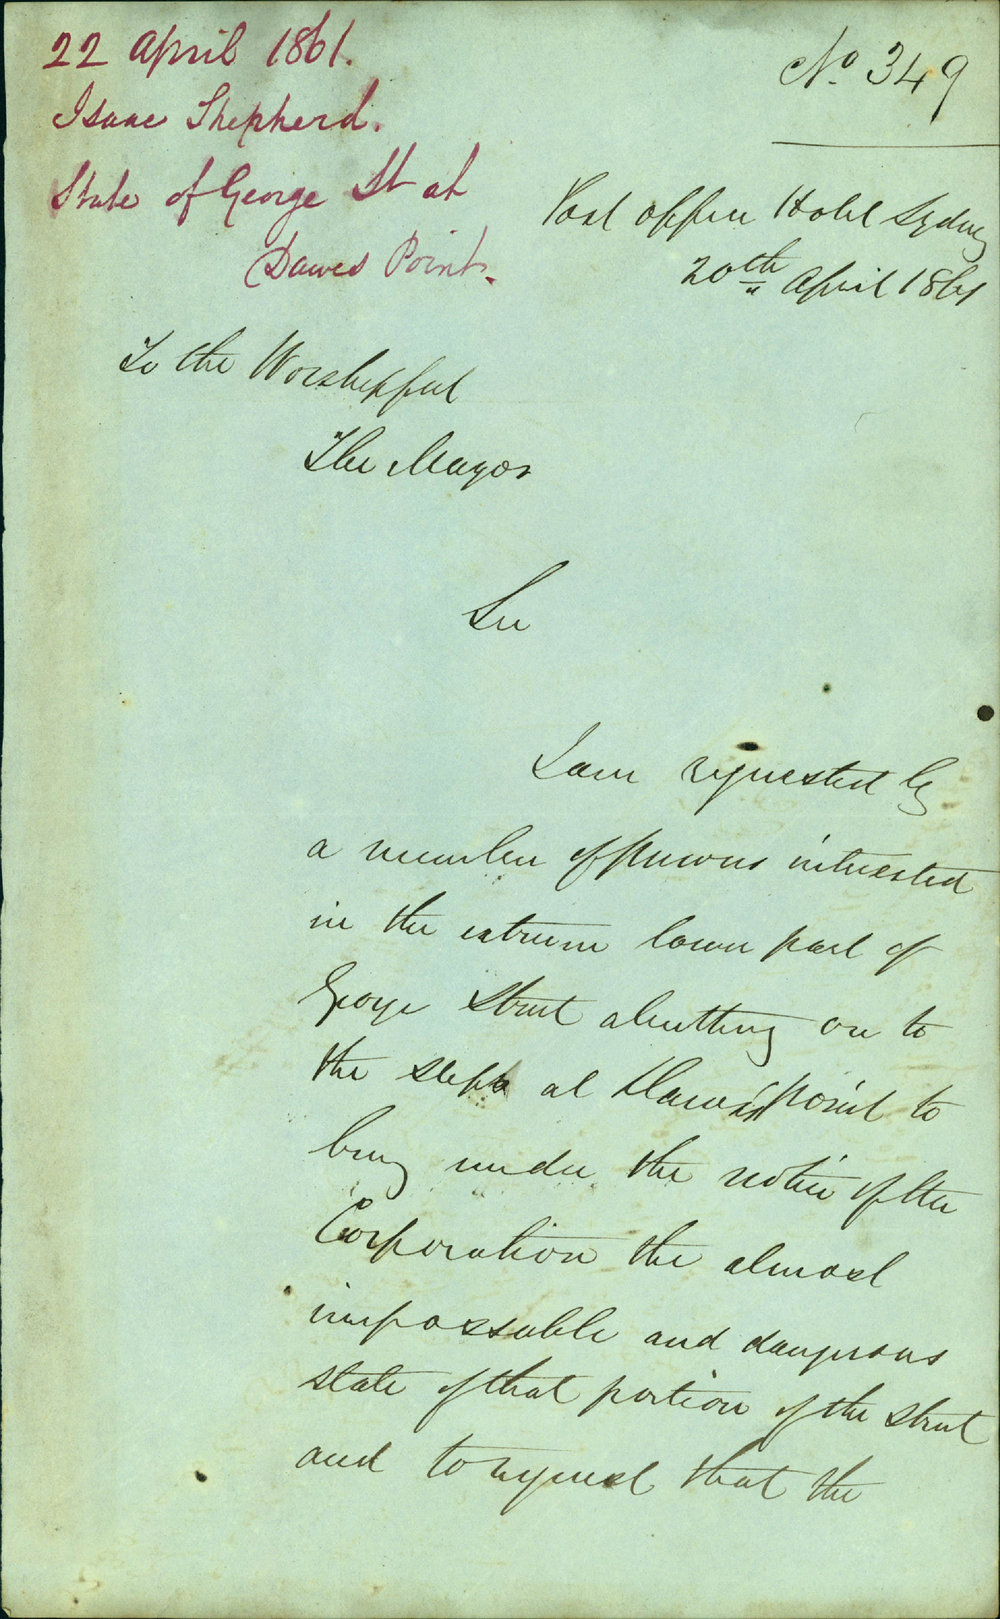 22 April 1861.
Isaac Shepherd.
State of George St at
Dawes Point.
No 349
Post office Hotel Sydney
20th April 1861
To the Worshipful
The Mayor
Sir
I am requested by
a number of persons interested
in the extreme lower part of
George Street abutting on to
the steps at Dawes point to
bring under the notice of the
Corporation the almost
impossable and dangerous
state of that portion of the Street
and to request that the